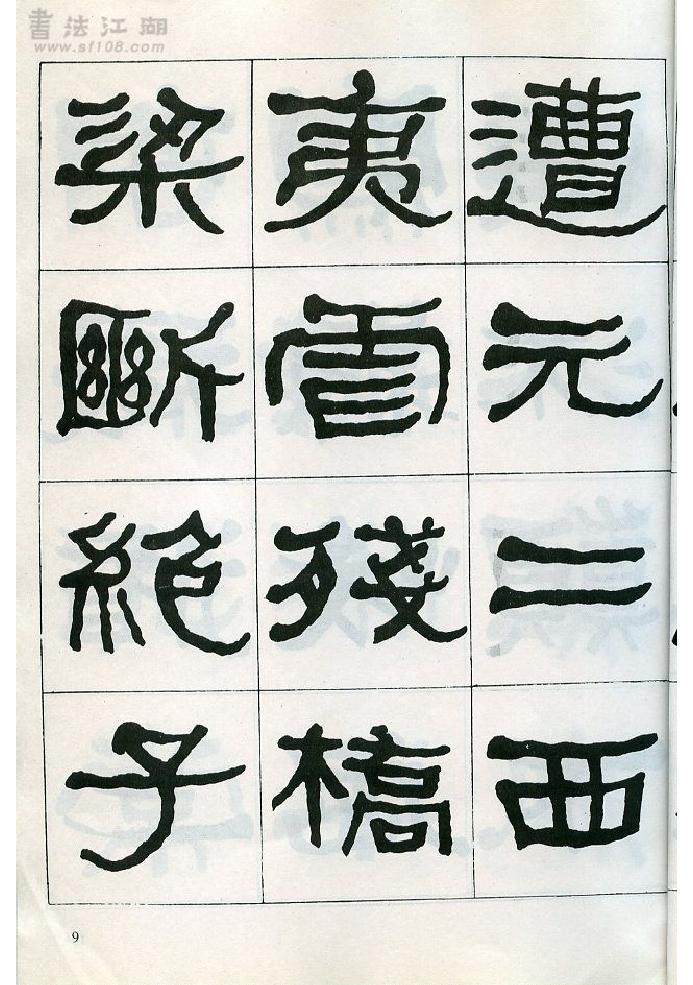 書法江湖
www.sf108.com
遭元二西
夷虐殘橋
梁斷絕子
9